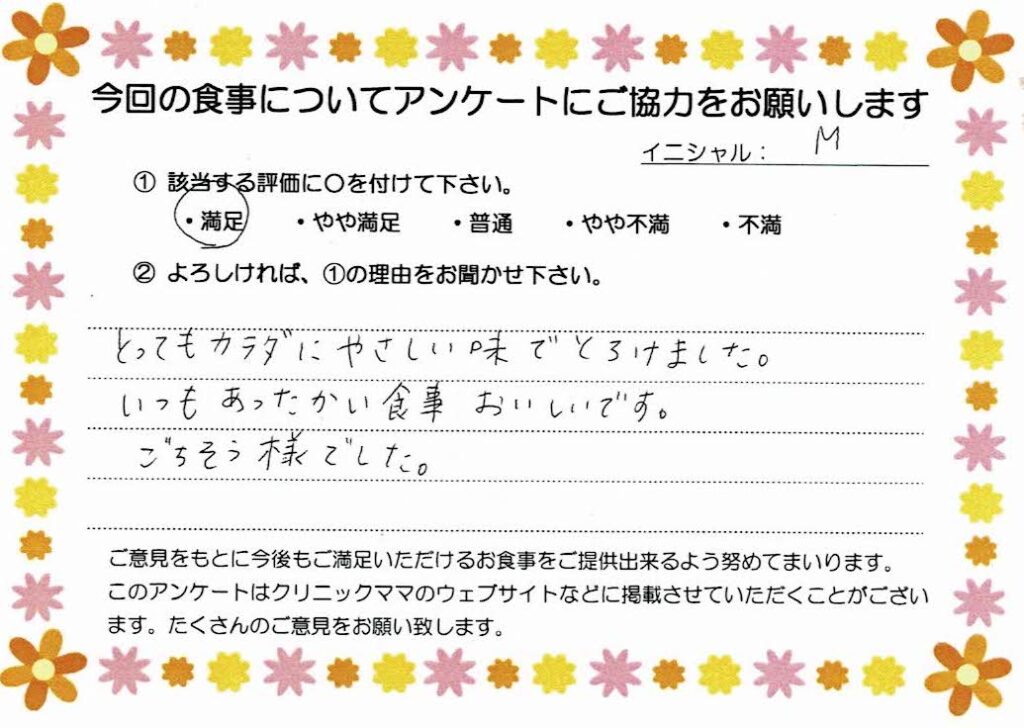 今回の食事についてアンケートにご協力をお願いします
イニシャル： M
① 該当する評価に〇を付けて下さい。
・満足 ・やや満足 ・普通 ・やや不満 ・不満
② よろしければ、①の理由をお聞かせ下さい。
とってもカラダにやさしい味でとろけました。
いつもあったかい食事おいしいです。
ごちそう様でした。
ご意見をもとに今後もご満足いただけるお食事をご提供出来るよう努めてまいります。
このアンケートはクリニックママのウェブサイトなどに掲載させていただくことがござい
ます。たくさんのご意見をお願い致します。